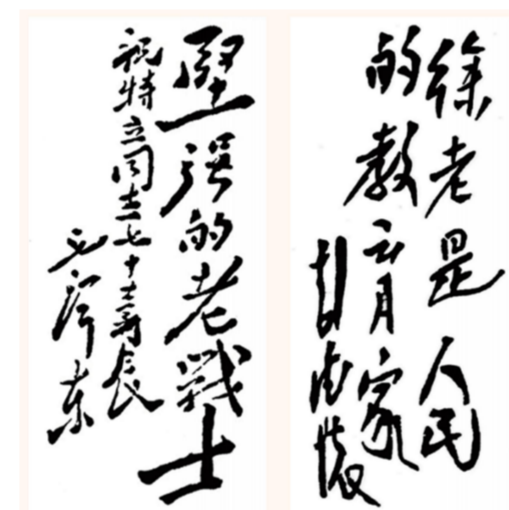 徐老是人民
的教育家
彭德懷
堅强的老戰士
祝特立同志七十大壽辰
毛澤東